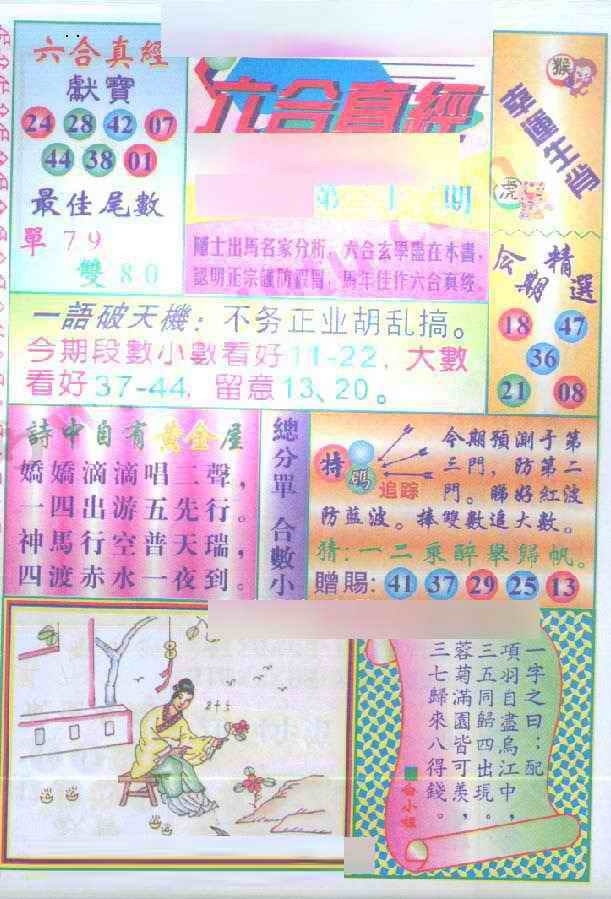 六合真經
獻寶
24 28 42 07
44 38 01
最佳尾數
單79
雙80
六合真經
第 期
隱士出馬名家分析，六合玄學盡在本書，
認明正宗謹防假冒，馬年佳作六合真經。
猴
虎
幸運生肖
今期精選
18 47
36
21 08
一語破天機：不务正业胡乱搞。
今期段數小數看好11-22，大數
看好37-44，留意13、20。
詩中自有黃金屋
嬌嬌滴滴唱二聲，
一四出游五先行。
神馬行空普天瑞，
四渡赤水一夜到。
總分單 合數小
特碼
追踪
今期預測于第
三門，防第二
門。睇好紅波
防藍波。捧雙數追大數。
猜：一二乘醉舉歸帆。
贈賜：41 37 29 25 13
一字之曰：配
項羽自盡烏江中，
三五同歸四出現。
蓉菊滿園皆可羨，
三七歸來八得錢。
白小姐